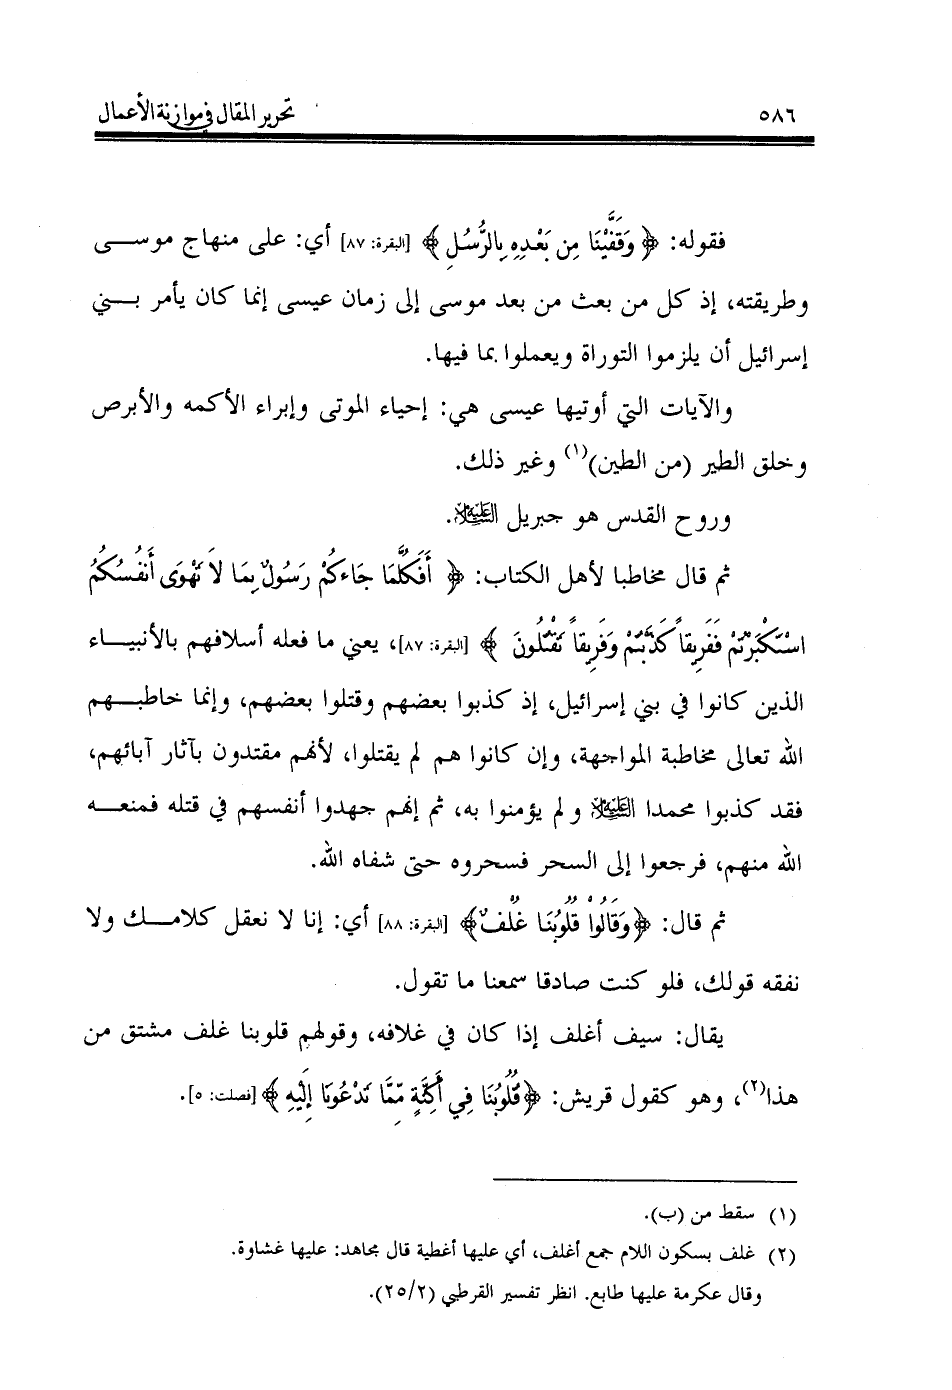 ٥٨٦ تحرير المقال في موازنة الأعمال
فقوله: ﴿ وَقَفَّيْنَا مِن بَعْدِهِ بِالرُّسُلِ ﴾ [البقرة: ٨٧] أي: على منهاج موسى
وطريقته، إذ كل من بعث من بعد موسى إلى زمان عيسى إنما كان يأمر بني
إسرائيل أن يلزموا التوراة ويعملوا بما فيها.
والآيات التي أوتيها عيسى هي: إحياء الموتى وإبراء الأكمه والأبرص
وخلق الطير (من الطين)(١) وغير ذلك.
وروح القدس هو جبريل عليه السلام.
ثم قال مخاطبا لأهل الكتاب: ﴿ أَفَكُلَّمَا جَاءكُمْ رَسُولٌ بِمَا لاَ تَهْوَى أَنفُسُكُمُ
اسْتَكْبَرْتُمْ فَفَرِيقاً كَذَّبْتُمْ وَفَرِيقاً تَقْتُلُونَ ﴾ [البقرة: ٨٧]، يعني ما فعله أسلافهم بالأنبياء
الذين كانوا في بني إسرائيل، إذ كذبوا بعضهم وقتلوا بعضهم، وإنما خاطبهم
الله تعالى مخاطبة المواجهة، وإن كانوا هم لم يقتلوا، لأنهم مقتدون بآثار آبائهم،
فقد كذبوا محمدا عليه السلام ولم يؤمنوا به، ثم إنهم جهدوا أنفسهم في قتله فمنعه
الله منهم، فرجعوا إلى السحر فسحروه حتى شفاه الله.
ثم قال: ﴿وَقَالُواْ قُلُوبُنَا غُلْفٌ﴾ [البقرة: ٨٨] أي: إنا لا نعقل كلامك ولا
نفقه قولك، فلو كنت صادقا سمعنا ما تقول.
يقال: سيف أغلف إذا كان في غلافه، وقولهم قلوبنا غلف مشتق من
هذا(٢)، وهو كقول قريش: ﴿قُلُوبُنَا فِي أَكِنَّةٍ مِّمَّا تَدْعُونَا إِلَيْهِ ﴾ [فصلت: ٥].
(١) سقط من (ب).
(٢) غلف بسكون اللام جمع أغلف، أي عليها أغطية قال مجاهد: عليها غشاوة.
وقال عكرمة عليها طابع. انظر تفسير القرطبي (٢/٢٥).